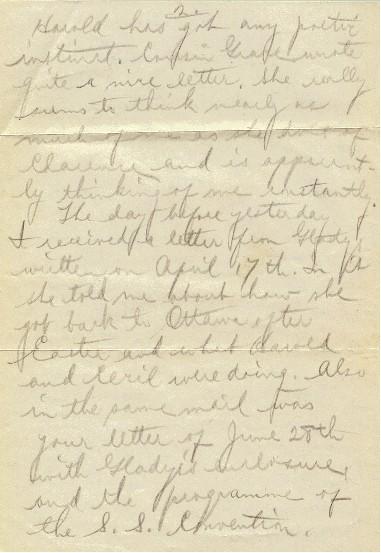 2.
Harold has got any poetic
instinct. Cousin Grace wrote
quite a nice letter. She really
seems to think nearly as
much of me as she does of
Clarence and is apparent-
ly thinking of me instantly.
The day before yesterday
I received a letter from Gladys
written on April 17th. In it
she told me about how she
got back to Ottawa after
Easter and what Harold
and Cecil were doing. Also
in the same mail was
your letter of June 28th
with Gladys's enclosure,
and the programme of
the S. S. Convention.